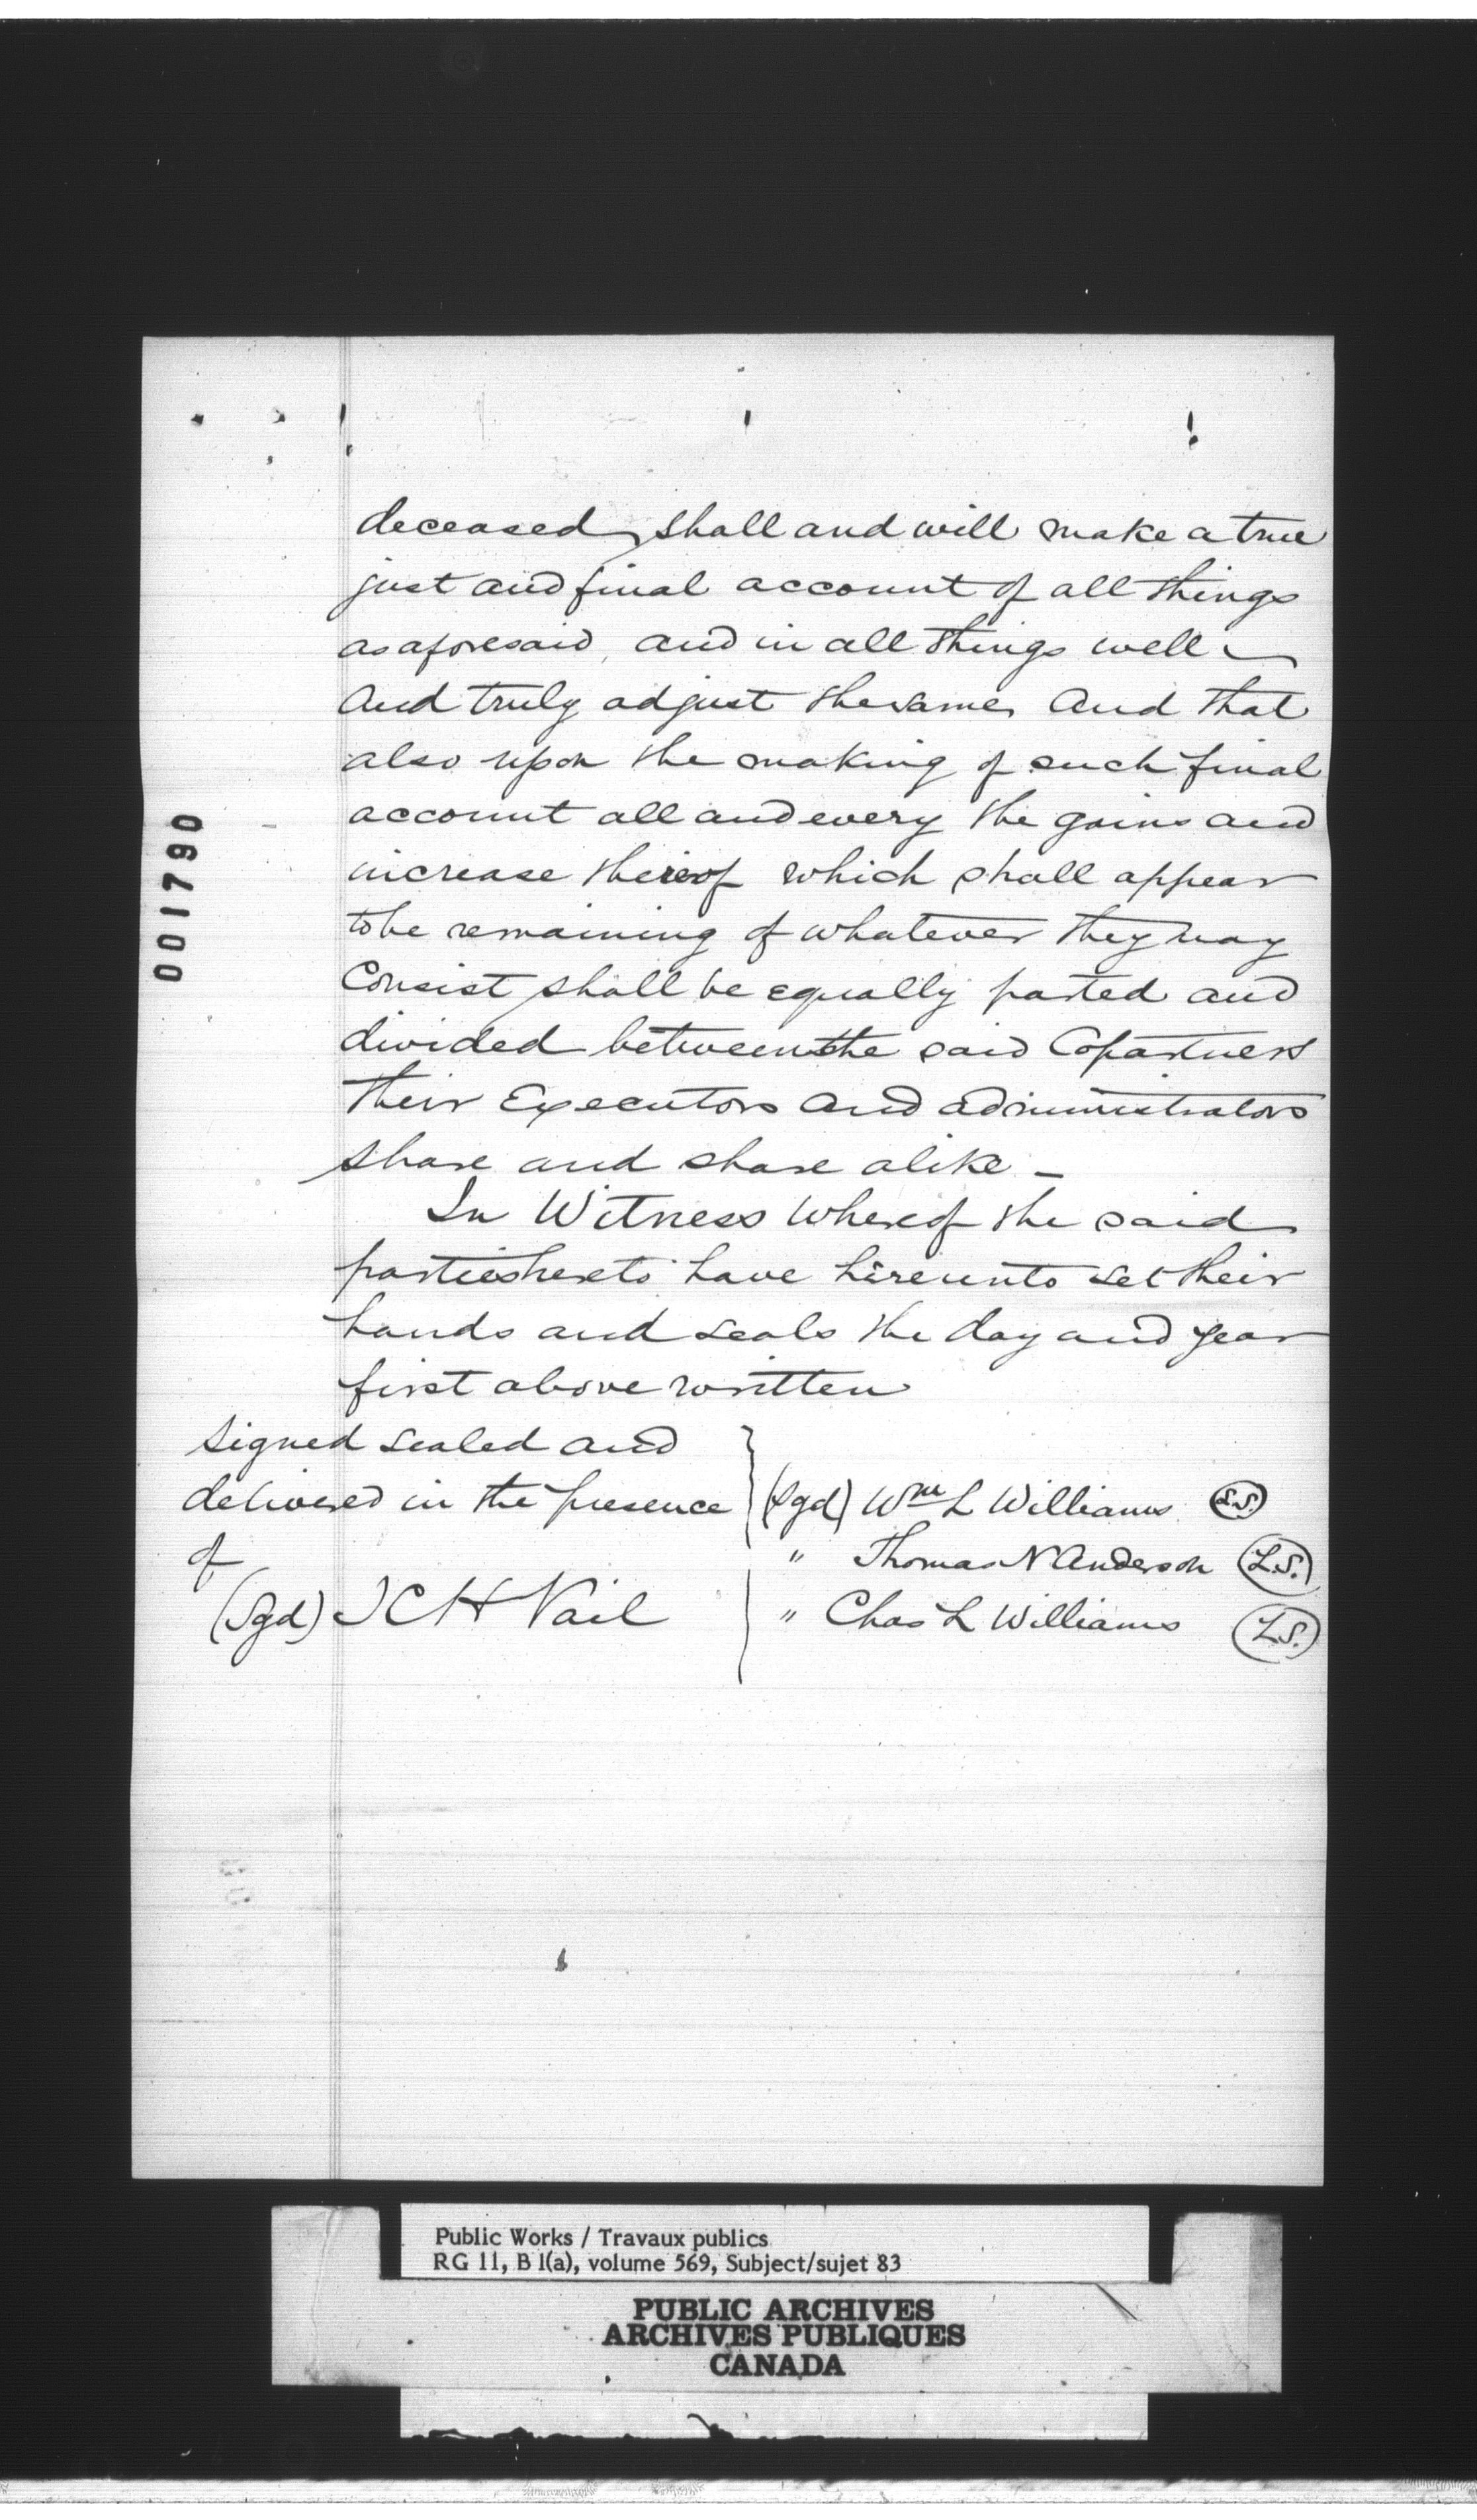 deceased, shall and will make a true
just and final account of all things
as aforesaid, and in all things well
And truly adjust the same, And that
also upon the making of such final
account all and every the gains and
increase thereof which shall appear
to be remaining of whatever they may
Consist shall be equally parted and
divided between the said Copartners
their Executors and administrators
share and share alike –
In Witness whereof the said
parties hereto have hereunto set their
hands and seals the day and year
first above written
Signed sealed and
delivered in the presence
of
(Sgd) J C H Vail
(Sgd) Wm L Williams L.S.
" Thomas N Anderson L.S.
" Chas L Williams L.S.
001790
Public Works / Travaux publics
RG 11, B 1(a), volume 569, Subject/sujet 83
PUBLIC ARCHIVES
ARCHIVES PUBLIQUES
CANADA